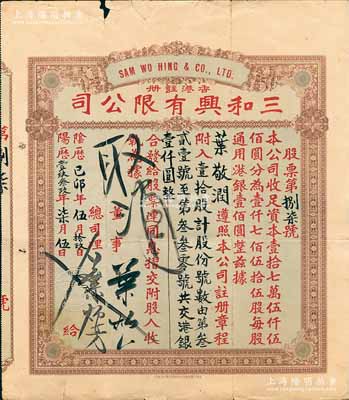 SAM WO HING & CO., LTD.
香港註册
三和興有限公司
股票第捌柒號
本公司收足資本壹拾七萬伍仟伍
佰圓分為壹仟七佰伍拾伍股每股
通用港銀壹佰圓整兹據
葉敬潤 遵照本公司註册章程
附入壹拾股計股份號數由第叁
貳壹號至第叁叁零號共交港銀
壹仟圓整
合發給股票連同息摺交附股人收
董事
總司理
陰歷己卯年伍月拾玖日
陽歷壹玖叁玖年柒月伍日 給